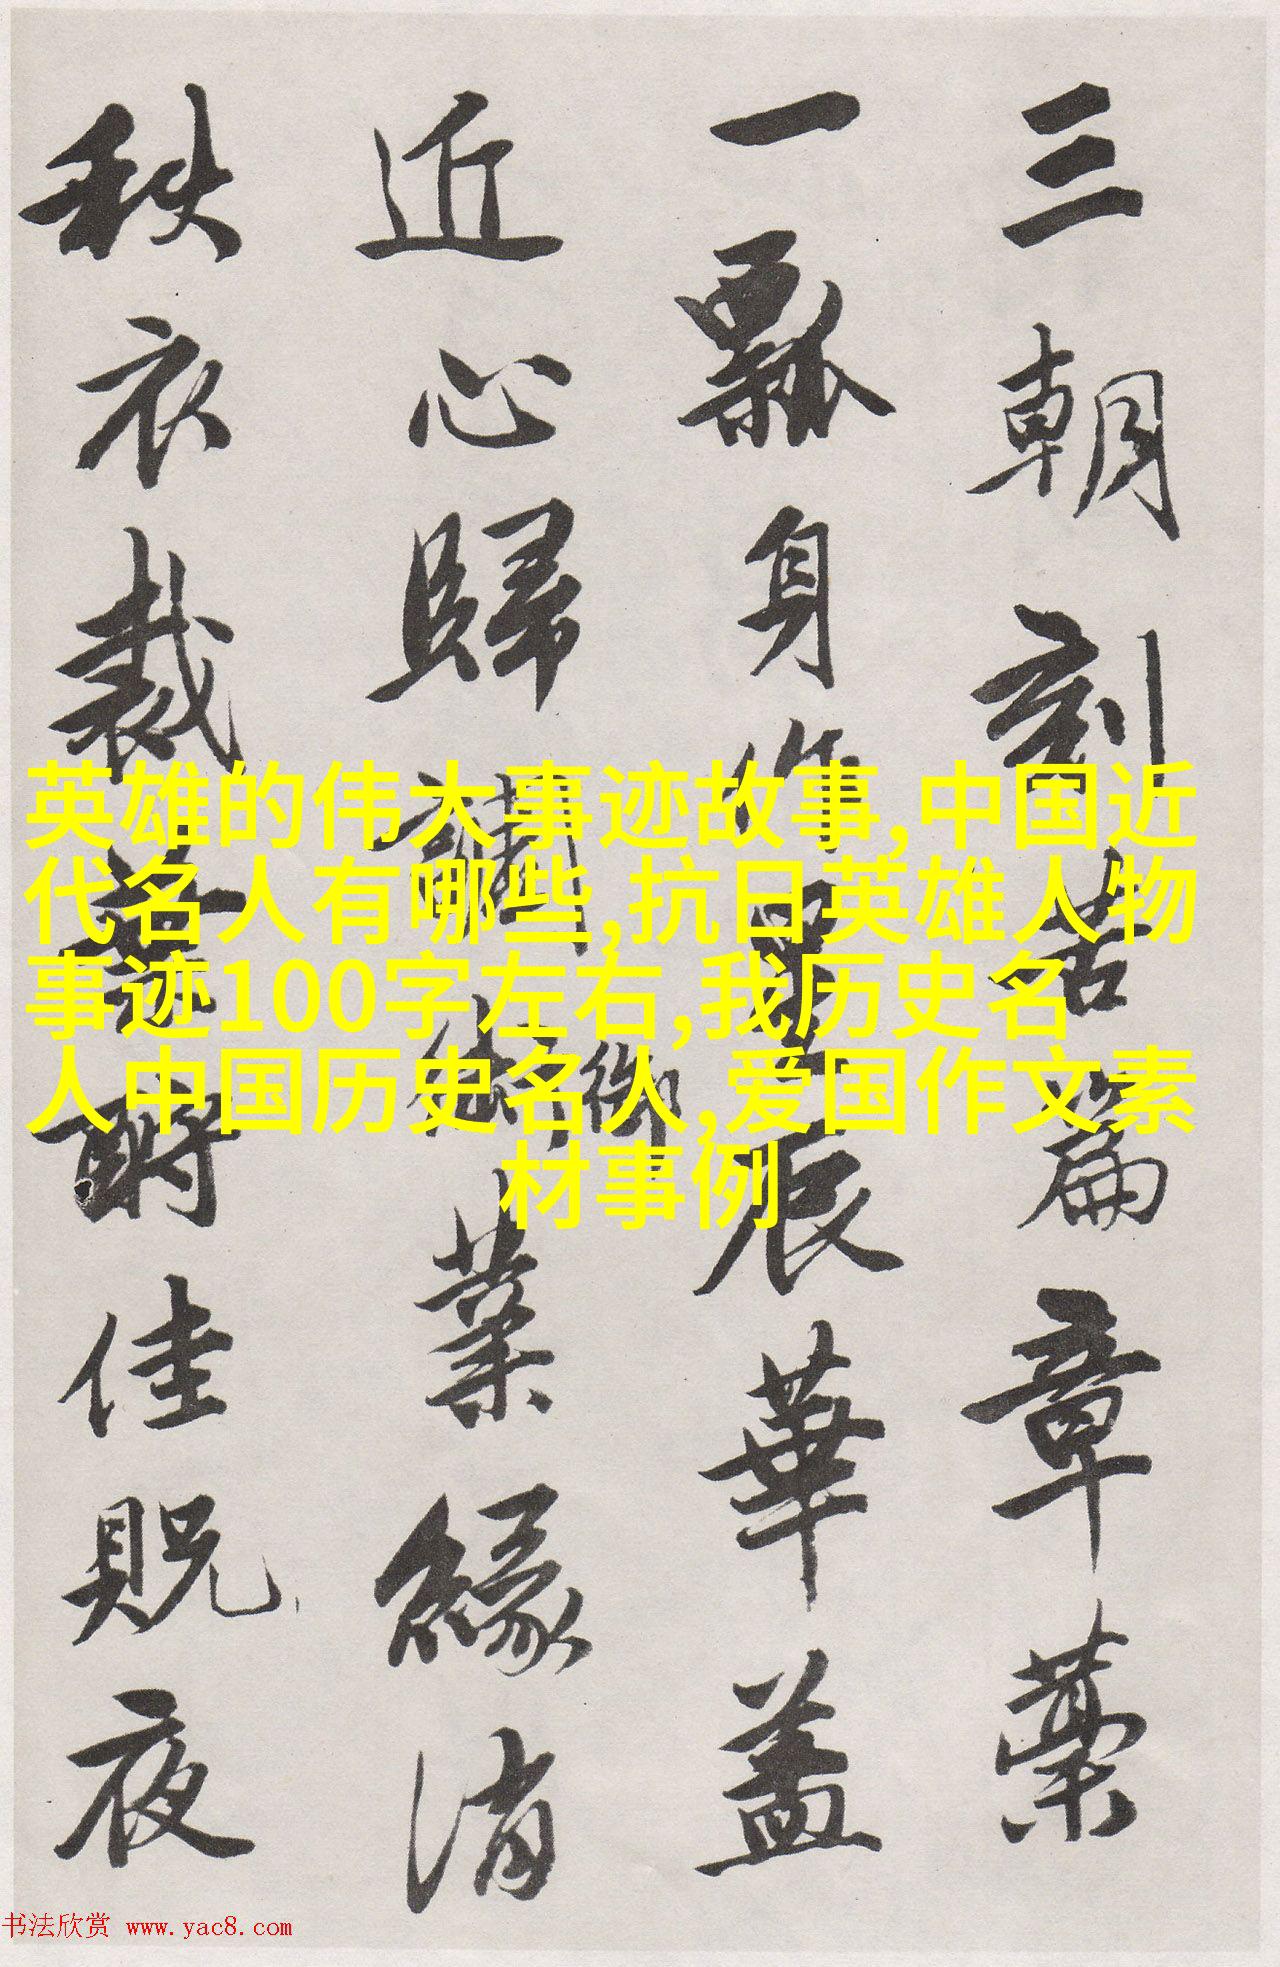 三朝刻苦篇章藁
一瓢身作星辰華蓋
近心歸講結習御業緣消
秩衣裁並酹佳貺夜
英雄的伟大事迹故事,中国近
代名人有哪些,抗日英雄人物
事迹100字左右,我历史名
人中国历史名人,爱国作文素
材事例
书法欣赏 www.yac8.com